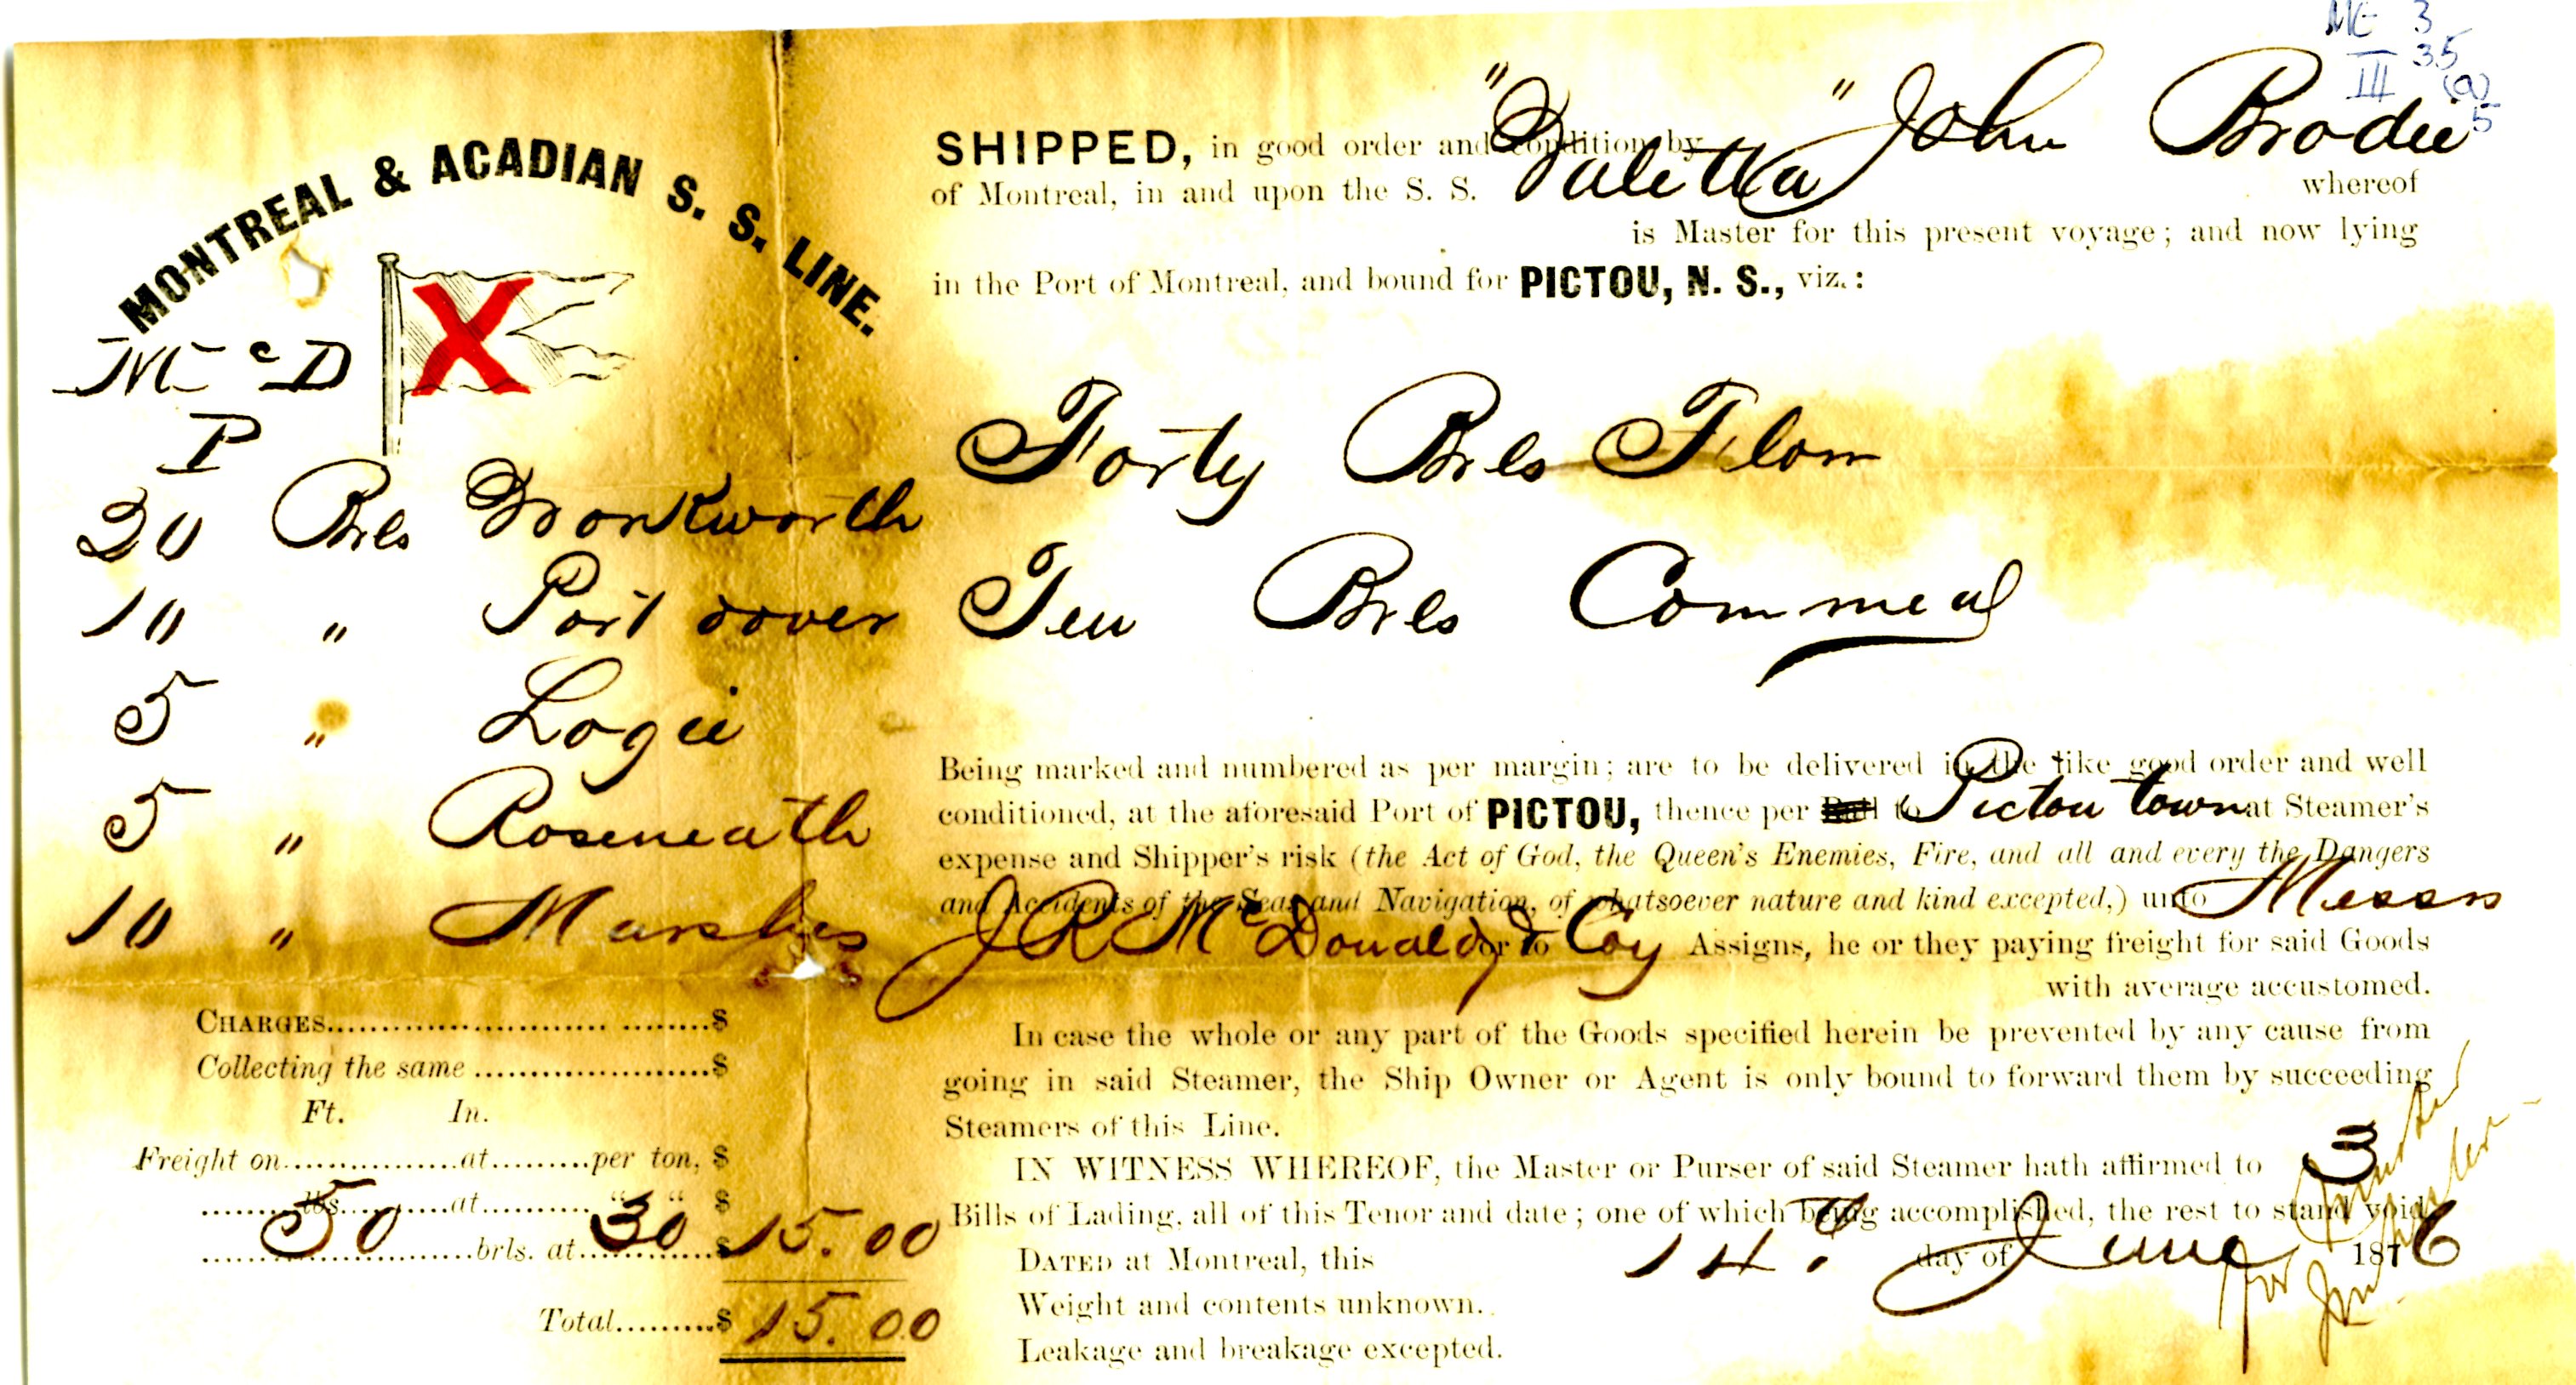 ME 3
III 35
(a)
5
MONTREAL & ACADIAN S. S. LINE.
McD
P
20 Brls Monkworth
10 " Port dover
5 " Logie
5 " Roseneath
10 " Marshes
CHARGES..............................$
Collecting the same.....................$
Ft. In.
Freight on................at.........per ton, $
........lbs.........at.........." " $
50 brls. at 30 $ 15.00
Total.........$ 15.00
SHIPPED, in good order and condition by John Brodie
of Montreal, in and upon the S. S. "Valetta" whereof
is Master for this present voyage; and now lying
in the Port of Montreal, and bound for PICTOU, N. S., viz.:
Forty Brls Flour
Ten Brls Cornmeal
Being marked and numbered as per margin; are to be delivered in the like good order and well
conditioned, at the aforesaid Port of PICTOU, thence per Rail to Pictou town at Steamer's
expense and Shipper's risk (the Act of God, the Queen's Enemies, Fire, and all and every the Dangers
and Accidents of the Seas and Navigation, of whatsoever nature and kind excepted,) unto Messrs
J R McDonald & Coy or to Assigns, he or they paying freight for said Goods
with average accustomed.
In case the whole or any part of the Goods specified herein be prevented by any cause from
going in said Steamer, the Ship Owner or Agent is only bound to forward them by succeeding
Steamers of this Line.
IN WITNESS WHEREOF, the Master or Purser of said Steamer hath affirmed to 3
Bills of Lading, all of this Tenor and date; one of which being accomplished, the rest to stand void.
DATED at Montreal, this 14th day of June 1876
Weight and contents unknown.
Leakage and breakage excepted.
for